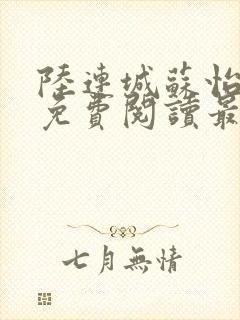 陸連城蘇怡
免費閱讀最
七月無情